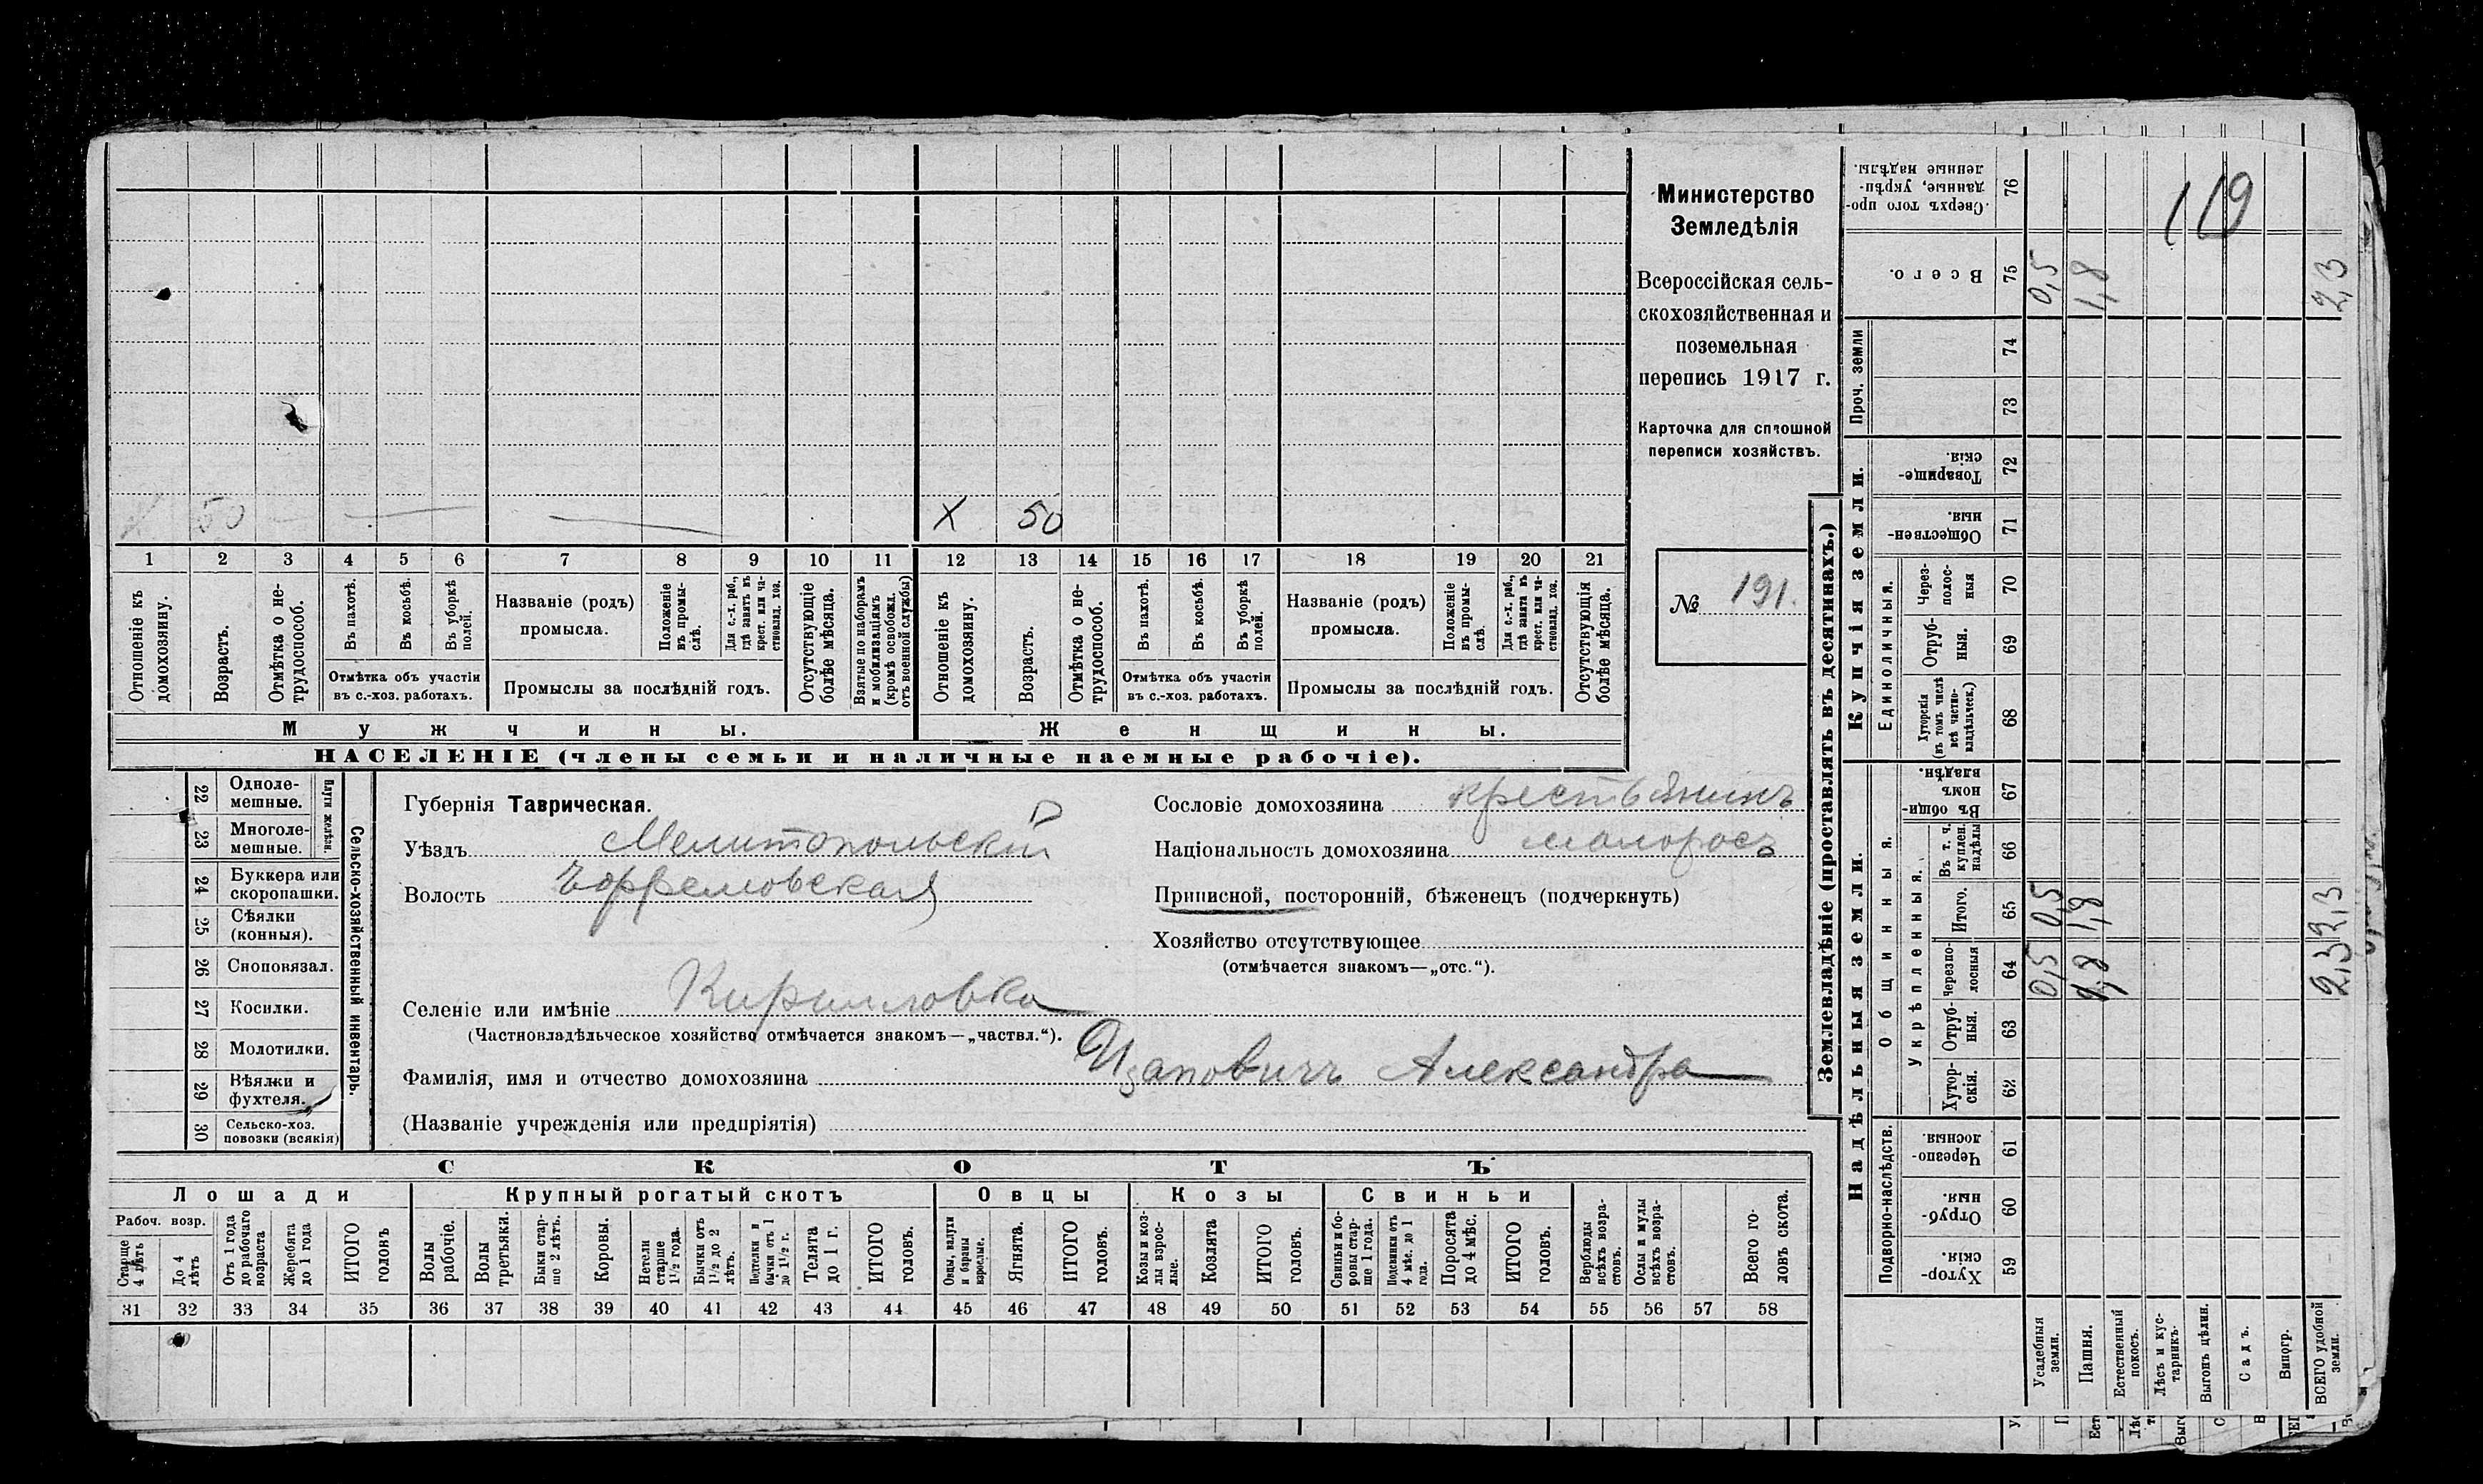 Министерство
Земледѣлія
Всероссійская сель-
скохозяйственная и
поземельная
перепись 1917 г.
Карточка для сплошной
переписи хозяйствъ.
№ 191.
119
Х 50
Х 50
1 2 3 4 5 6 7 8 9 10 11 12 13 14 15 16 17 18 19 20 21
Отношеніе къ домохозяину.
Возрастъ.
Отмѣтка о не-трудоспособ.
Въ пахотѣ.
Въ косьбѣ.
Въ уборкѣ полей.
Отмѣтка объ участіи
въ с.-хоз. работахъ.
Названіе (родъ)
промысла.
Положеніе въ промы-слѣ.
Для с.-х. раб., гдѣ занятъ въ крест. или ча-стновлад. хоз.
Промыслы за послѣдній годъ.
Отсутствующіе болѣе мѣсяца.
Взятые по наборамъ и мобилизаціямъ (кромѣ освобожд. отъ военной службы)
Отношеніе къ домохозяину.
Возрастъ.
Отмѣтка о не-трудоспособ.
Въ пахотѣ.
Въ косьбѣ.
Въ уборкѣ полей.
Отмѣтка объ участіи
въ с.-хоз. работахъ.
Названіе (родъ)
промысла.
Положеніе въ промы-слѣ.
Для с.-х. раб., гдѣ занята въ крест. или ча-стновлад. хоз.
Промыслы за послѣдній годъ.
Отсутствующія болѣе мѣсяца.
Мужчины.
Женщины.
НАСЕЛЕНІЕ (члены семьи и наличные наемные рабочіе).
22 Одноле-мешные.
23 Многоле-мешные.
Плуги желѣзн.
24 Буккера или скоропашки.
25 Сѣялки (конныя).
26 Сноповязал.
27 Косилки.
28 Молотилки.
29 Вѣялки и фухтеля.
30 Сельско-хоз. повозки (всякія)
Сельско-хозяйственный инвентарь.
Губернія Таврическая.
Уѣздъ Мелитопольскій
Волость
Селеніе или имѣніе Кирилловка
(Частновладѣльческое хозяйство отмѣчается знакомъ—„частвл.“).
Фамилія, имя и отчество домохозяина Александра
(Названіе учрежденія или предпріятія)
Сословіе домохозяина крестьянинъ
Національность домохозяина малоросъ
Приписной, посторонній, бѣженецъ (подчеркнуть)
Хозяйство отсутствующее
(отмѣчается знакомъ—„отс.“).
СКОТЪ
Лошади
Крупный рогатый скотъ
Овцы
Козы
Свиньи
Рабоч. возр.
Старше 4 лѣтъ
До 4 лѣтъ
Отъ 1 года до рабочаго возраста
Жеребята до 1 года
ИТОГО головъ
Волы рабочіе.
Волы третьяки.
Быки стар-ше 2 лѣтъ.
Коровы.
Нетели старше 1½ года.
Бычки отъ 1½ до 2 лѣтъ.
Подтелки и бычки отъ 1 до 1½ г.
Телята до 1 г.
ИТОГО головъ.
Овцы, валухи и бараны взрослые.
Ягнята.
ИТОГО головъ.
Козы и коз-лы взрос-лые.
Козлята
ИТОГО головъ.
Свиньи и бо-ровы стар-ше 1 года.
Подсвинки отъ 4 мѣс. до 1 года.
Поросята до 4 мѣс.
ИТОГО головъ.
Верблюды всѣхъ возра-стовъ.
Ослы и мулы всѣхъ возра-стовъ.
Всего го-ловъ скота.
31 32 33 34 35 36 37 38 39 40 41 42 43 44 45 46 47 48 49 50 51 52 53 54 55 56 57 58
Землевладѣніе (проставлять въ десятинахъ.)
Купчія земли.
Надѣльныя земли.
Проч. земли
Единоличныя.
Общинныя.
Укрѣпленныя.
Подворно-наслѣдств.
Сверхъ того про-данные, укрѣп-ленные надѣлы. 76
Всего. 75 0,5 1,8 2,3
74
73
Товарище-скія. 72
Обществен-ныя. 71
Через-полос-ныя 70
Отруб-ныя. 69
Хуторскія (въ томъ числѣ всѣ частно-владѣльческ.) 68
Въ общи-номъ владѣн. 67
Въ т. ч. куплен. надѣлы 66
Итого. 65 0,5 1,8 2,3
Черезпо-лосныя 64 0,5 1,8 2,3
Отруб-ныя. 63
Хутор-скія. 62
Черезпо-лосныя. 61
Отруб-ныя. 60
Хутор-скія. 59
Усадебныя земли.
Пашня.
Естественный покосъ.
Лѣсъ и кус-тарникъ.
Выгонъ цѣлин.
Садъ.
Виногр.
ВСЕГО удобной земли.